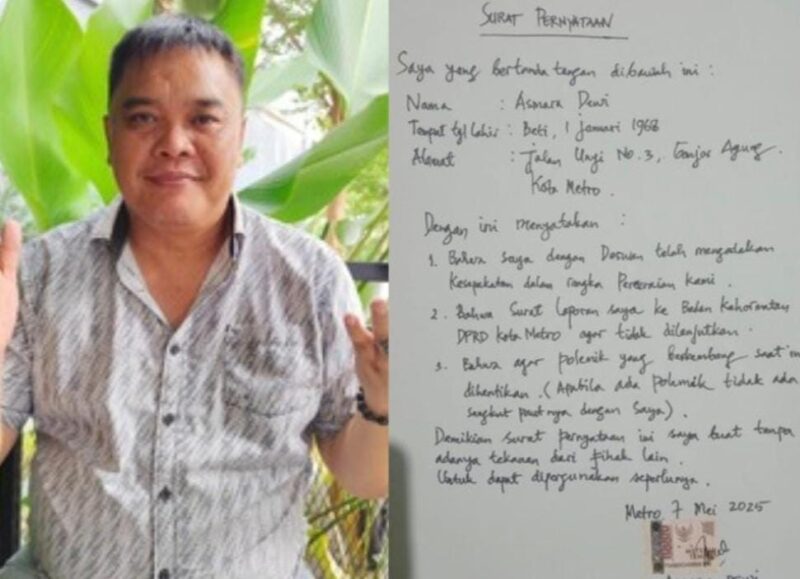 SURAT PERNYATAAN
Saya yang bertanda tangan dibawah ini :
Nama : Asmara Dewi
Tempat tgl lahir : Beti, 1 Januari 1968
Alamat : Jalan Unyi No. 3, Ganjar Agung.
Kota Metro.
Dengan ini menyatakan :
1. Bahwa saya dengan Deswan telah mengadakan
Kesepakatan dalam rangka Perceraian kami.
2. Bahwa Surat Laporan saya ke Badan Kehormatan
DPRD Kota Metro agar tidak dilanjutkan.
3. Bahwa agar polemik yang berkembang saat ini
dihentikan. (Apabila ada polemik tidak ada
sangkut pautnya dengan Saya).
Demikian surat pernyataan ini saya buat tanpa
adanya tekanan dari pihak lain.
Untuk dapat dipergunakan seperlunya.
Metro 7 Mei 2025